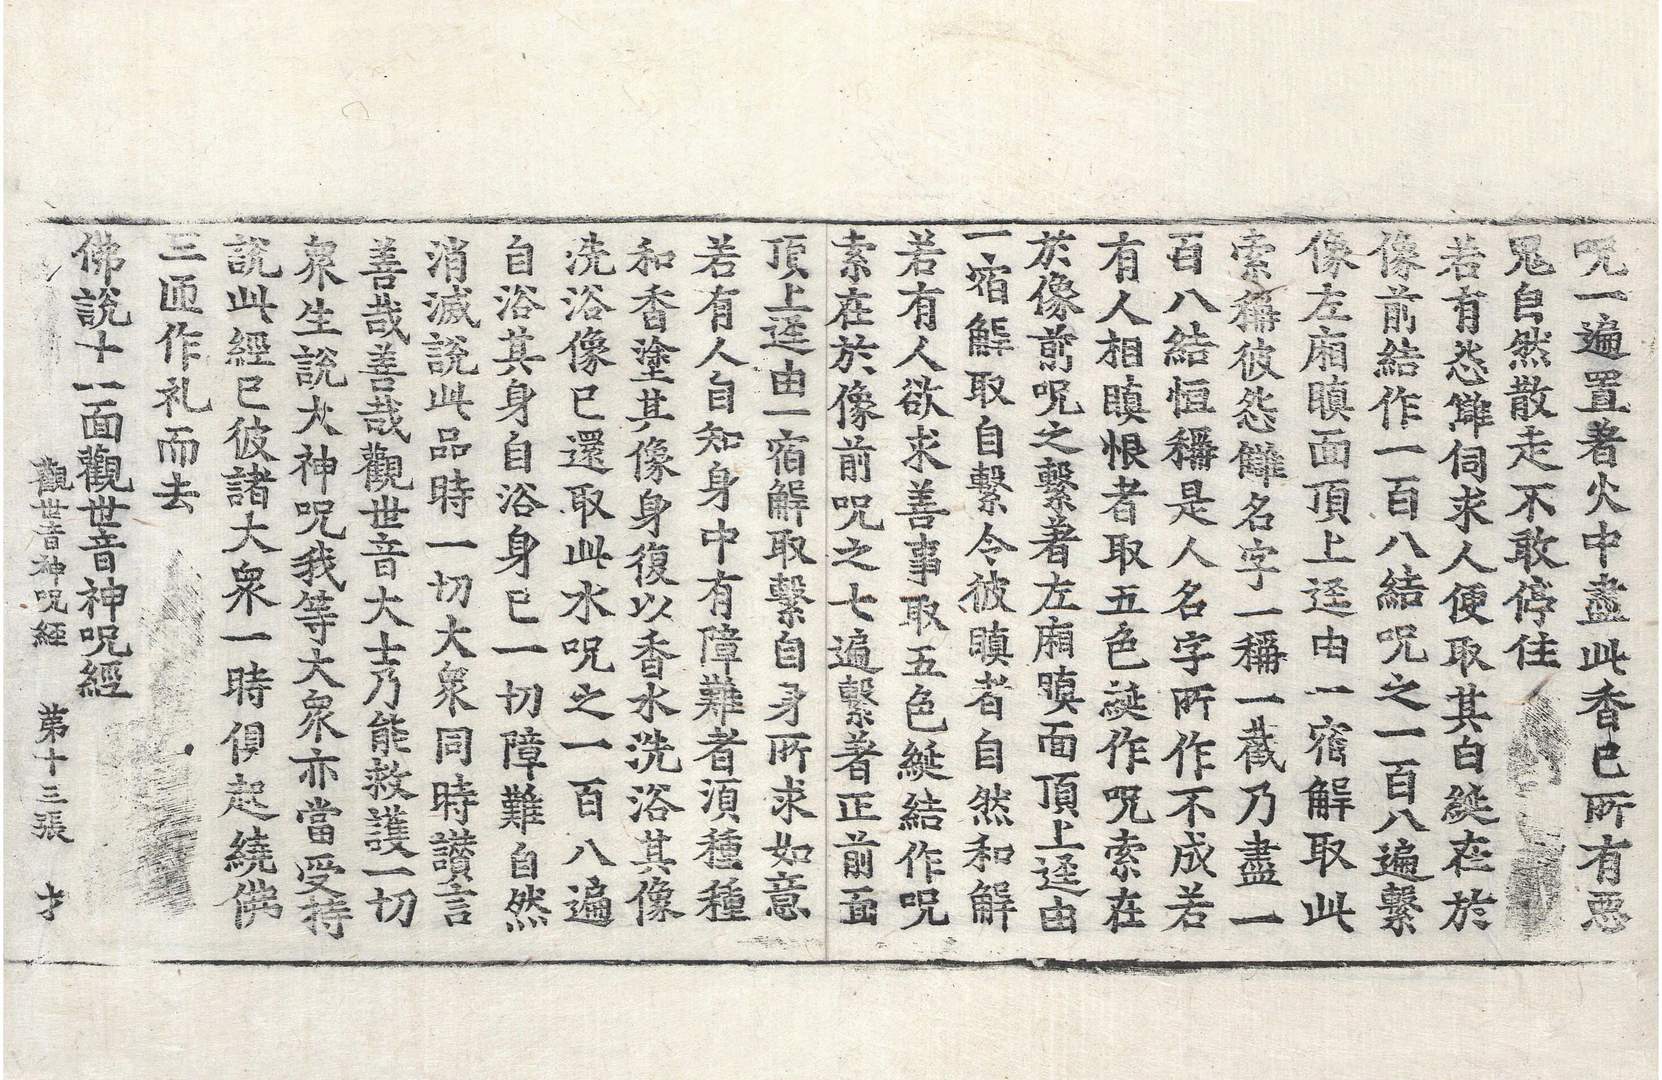 呪一遍置著火中盡此香已所有惡
鬼自然散走不敢停住
若有怨讎伺求人便取其白綖在於
像前結作一百八結呪之一百八遍繫
像左廂瞋面頂上逕由一宿解取此
索稱彼怨讎名字一稱一截乃盡一
百八結恒稱是人名字所作不成若
有人相瞋恨者取五色綖作呪索在
於像前呪之繫著左廂瞋面頂上逕由
一宿解取自繫令彼瞋者自然和解
若有人欲求善事取五色綖結作呪
索在於像前呪之七遍繫著正前面
頂上逕由一宿解取繫自身所求如意
若有人自知身中有障難者湏種種
和香塗其像身復以香水洗浴其像
洗浴像已還取此水呪之一百八遍
自浴其身自浴身已一切障難自然
消滅說此品時一切大衆同時讃言
善哉善哉觀世音大士乃能救護一切
衆生說大神呪我等大衆亦當受持
說此經已彼諸大衆一時俱起繞佛
三匝作礼而去
佛說十一面觀世音神呪經
觀世音神呪経　第十三張　才